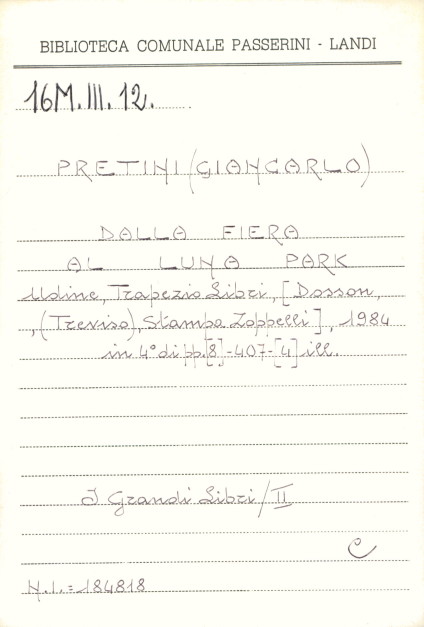 BIBLIOTECA COMUNALE PASSERINI - LANDI
16M.III.12.
PRETINI (GIANCARLO)
DALLA FIERA
AL LUNA PARK
Udine, Trapezio Libri, [Dosson,
, (Treviso), Stampa Zoppelli], 1984
in 4° di pp. [8]-407-[4] ill.
I Grandi Libri/II
C
N.I.=184818